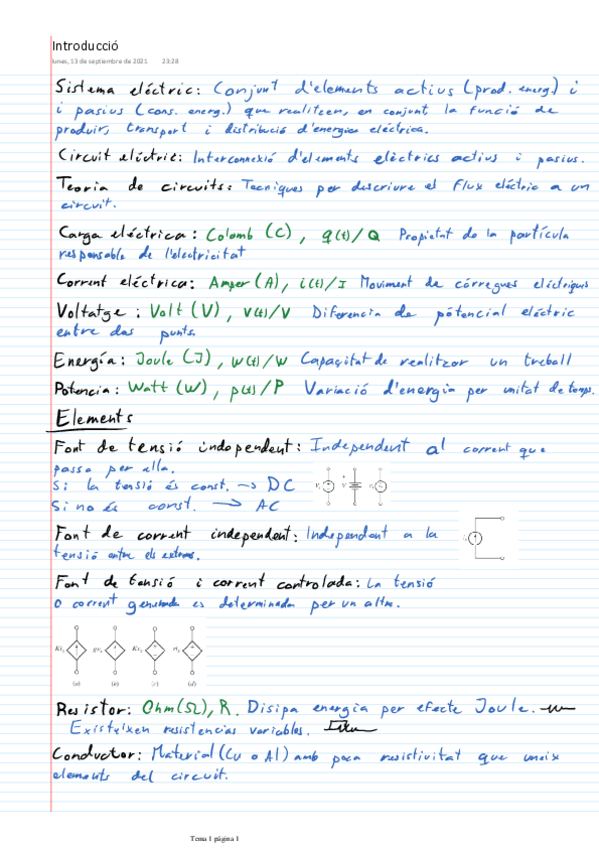 Introducció
lunes, 13 de septiembre de 2021 23:28
Sistema eléctric: Conjunt d'elements actius (prod. energ.) i
i pasius (cons. energ.) que realitzen, en conjunt la funció de
produir, transport i distribució d'energia eléctrica.
Circuit eléctric: Interconnexió d'elements elèctrics actius i pasius.
Teoria de circuits: Tecniques per descriure el flux eléctric a un
circuit.
Carga eléctrica: Colomb (C), q(t)/Q Propietat de la partícula
responsable de l'electricitat
Corrent eléctrica: Amper (A), i(t)/I Moviment de córregues eléctriques
Voltatge: Volt (V), v(t)/V Diferencia de pótencial eléctric
entre dos punts.
Energía: Joule (J), w(t)/W Capaçitat de realitzar un treball
Potencia: Watt (W), p(t)/P Variació d'energia per unitat de temps.
Elements
Font de tensió independent: Independent al corrent que
passa per ella.
Si la tensió és const. → DC
Si no és const. → AC
Font de corrent independent: Independent a la
tensió entre els extrems.
Font de tensió i corrent controlada: La tensió
o corrent generada es determinada per un altre.
(a) (b) (c) (d)
Resistor: Ohm(Ω), R. Disipa energia per efecte Joule.
Existeixen resistencias variables.
Conductor: Material (Cu o Al) amb poca resistivitat que uneix
elements del circuit.
Tema 1 página 1